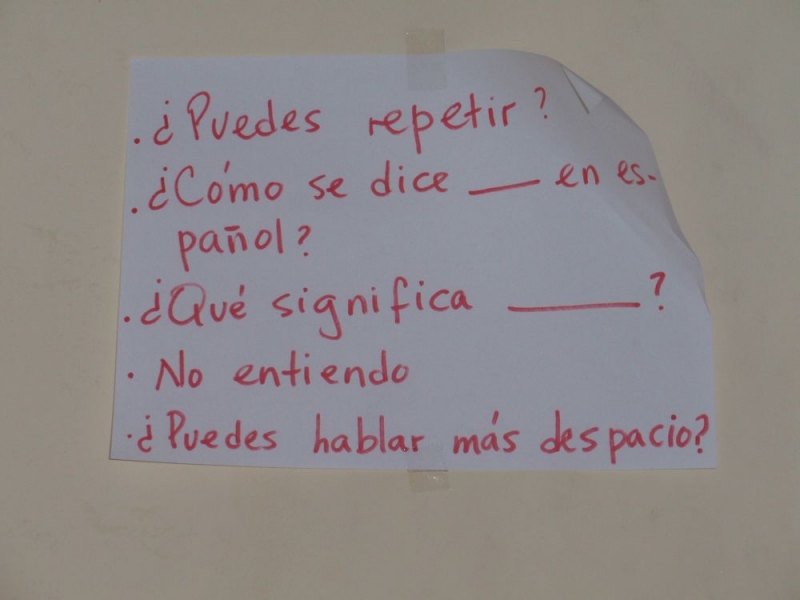 · ¿Puedes repetir?
· ¿Cómo se dice ___ en es-
pañol?
· ¿Qué significa ______?
· No entiendo
· ¿Puedes hablar más despacio?